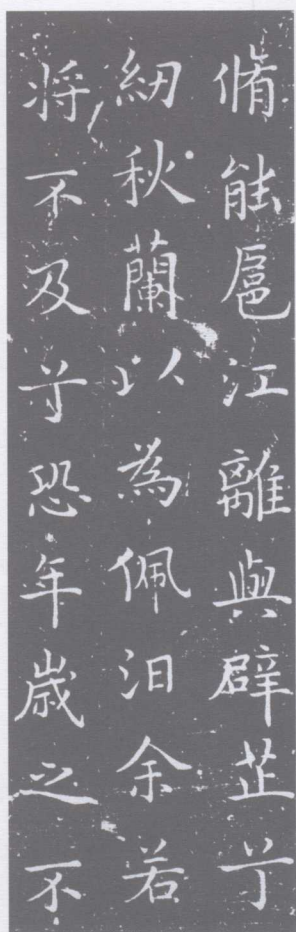 脩能扈江離與辟芷兮
紉秋蘭以為佩汩余若
将不及兮恐年歳之不